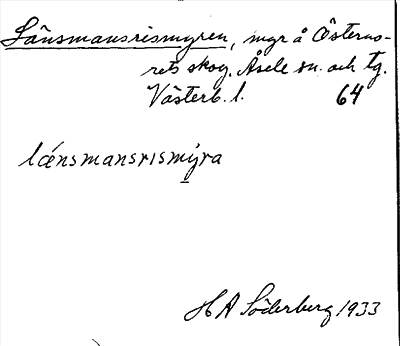 Länsmansrismyren, myr å Österno-
rets skog. Åsele sn. och tg.
Västerb. l. 64
lǽnsmansrismyra
H A Söderberg 1933